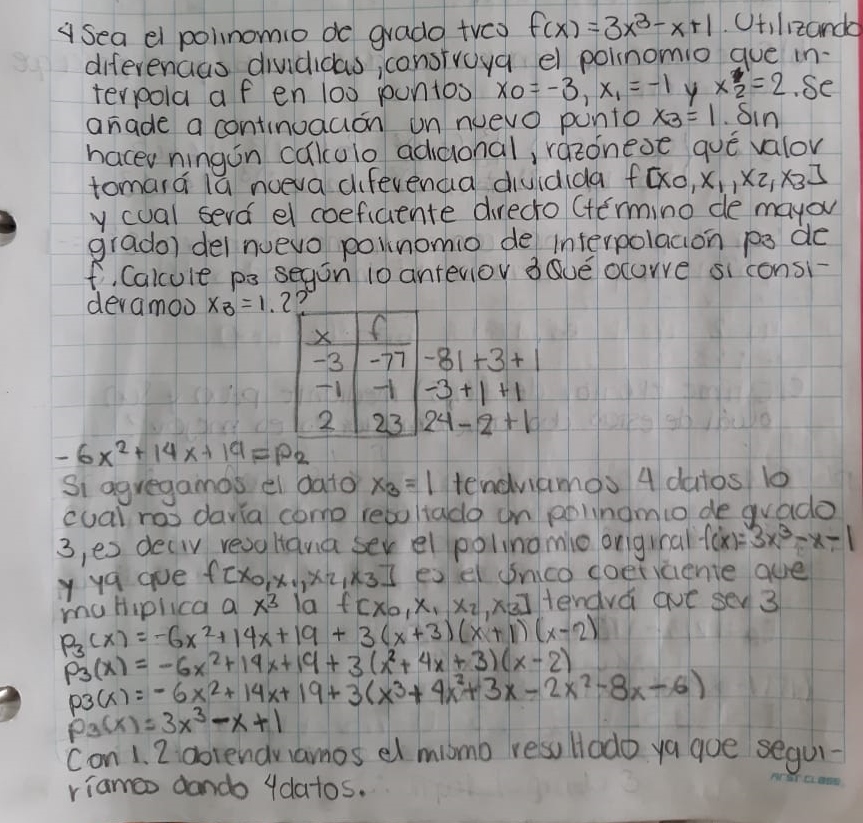 4 Sea el polinomio de grado tres f(x)=3x³-x+1. Utilizando
diferencias divididas, construya el polinomio que in-
terpola a f en los puntos x0=-3, x₁=-1 y x2=2. Se
añade a continuación un nuevo punto x3=1. Sin
hacer ningún cálculo adicional, razónese qué valor
tomará la nueva diferencia dividida f[x0,x1,x2,x3]
y cual será el coeficiente directo (término de mayor
grado) del nuevo polinomio de interpolación p3 de
f. Calcule p3 según lo anterior ¿Qué ocurre si consi-
deramos x3=1.2?
x f
-3 -77 -81+3+1
-1 -1 -3+1+1
2 23 24-2+1
-6x²+14x+19=p2
Si agregamos el dato x3=1 tendriamos 4 datos lo
cual nos daría como resultado un polinomio de grado
3, es decir resultaria ser el polinomio original f(x)=3x³-x-1
y ya que f[x0,x1,x2,x3] es el único coeficiente que
multiplica a x³ la f[x0,x1 x2,x3] tendrá que ser 3
p3(x)=-6x²+14x+19+3(x+3)(x+1)(x-2)
p3(x)=-6x²+14x+19+3(x²+4x+3)(x-2)
p3(x)=-6x²+14x+19+3(x³+4x²+3x-2x²-8x-6)
p3(x)=3x³-x+1
Con 1.2 obtendriamos el mismo resultado ya que segui-
ríamos dando 4 datos.
FIRST CLASS